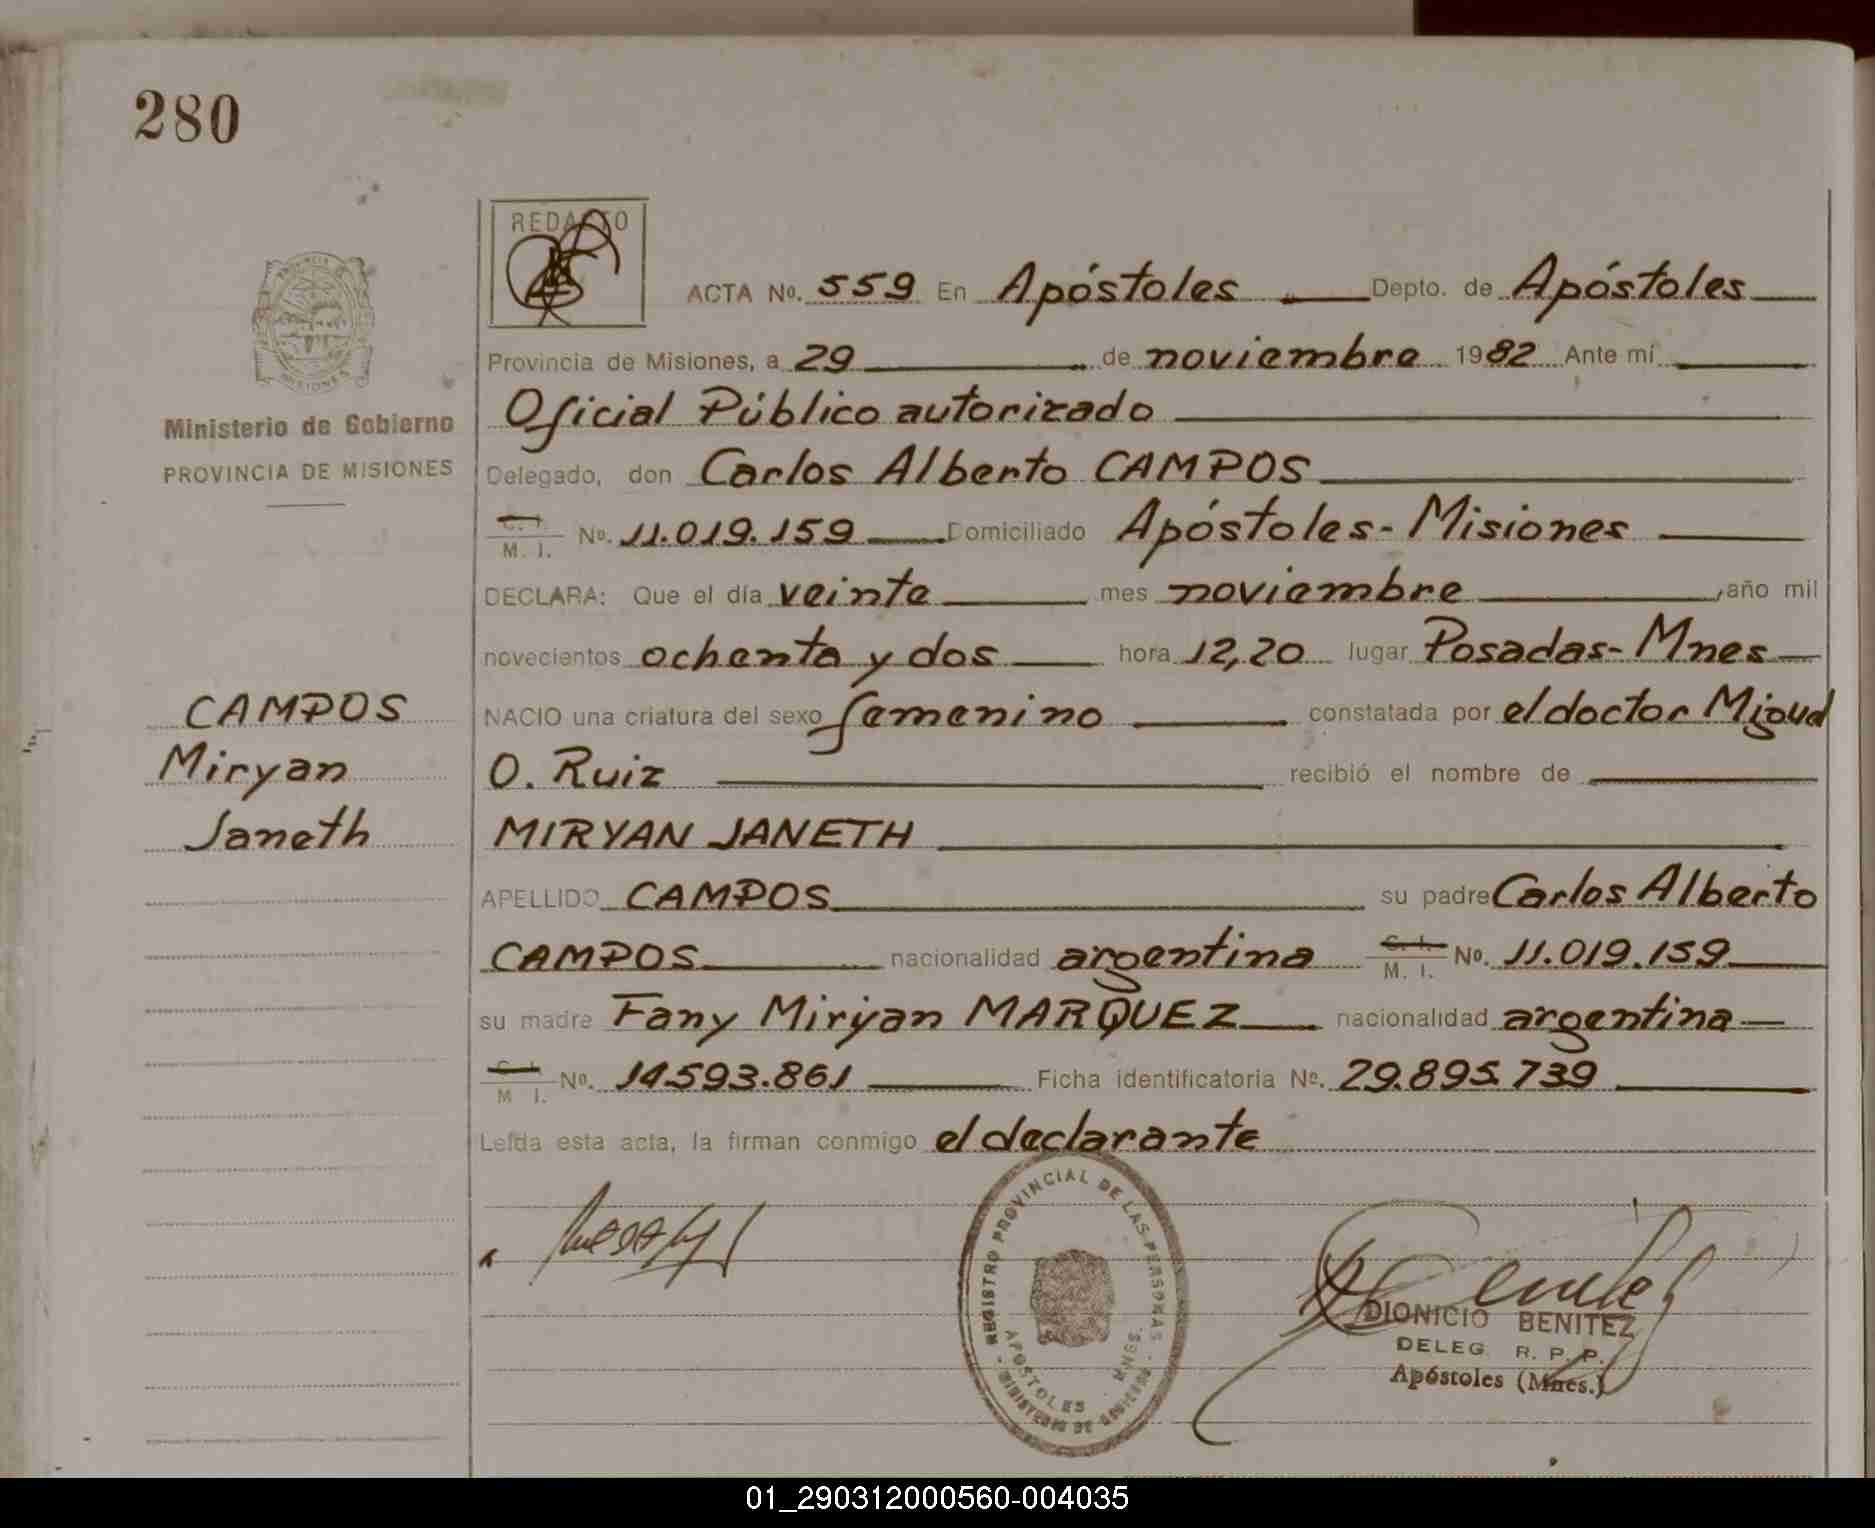 280
REDACTO
ACTA Nº. 559 En Apóstoles Depto. de Apóstoles
Provincia de Misiones, a 29 de noviembre 1982 Ante mí
Oficial Público autorizado
Delegado, don Carlos Alberto CAMPOS
C. I.
M. I. Nº. 11.019.159 Domiciliado Apóstoles - Misiones
DECLARA: Que el día veinte mes noviembre, año mil
novecientos ochenta y dos hora 12,20 lugar Posadas - Mnes
NACIO una criatura del sexo femenino constatada por el doctor Miguel
O. Ruiz recibió el nombre de
MIRYAN JANETH
APELLIDO CAMPOS su padre Carlos Alberto
CAMPOS nacionalidad argentina C. I.
M. I. Nº. 11.019.159
su madre Fany Miriyan MARQUEZ nacionalidad argentina
C. I.
M I. Nº. 14.593.861 Ficha identificatoria Nº. 29.895.739
Leída esta acta, la firman conmigo el declarante
PROVINCIA DE
MISIONES
Ministerio de Gobierno
PROVINCIA DE MISIONES
CAMPOS
Miryan
Janeth
REGISTRO PROVINCIAL DE LAS PERSONAS
APOSTOLES MNES.
MINISTERIO DE GOBIERNO
DIONICIO BENITEZ
DELEG. R. P. P.
Apóstoles (Mnes.)
01_290312000560-004035